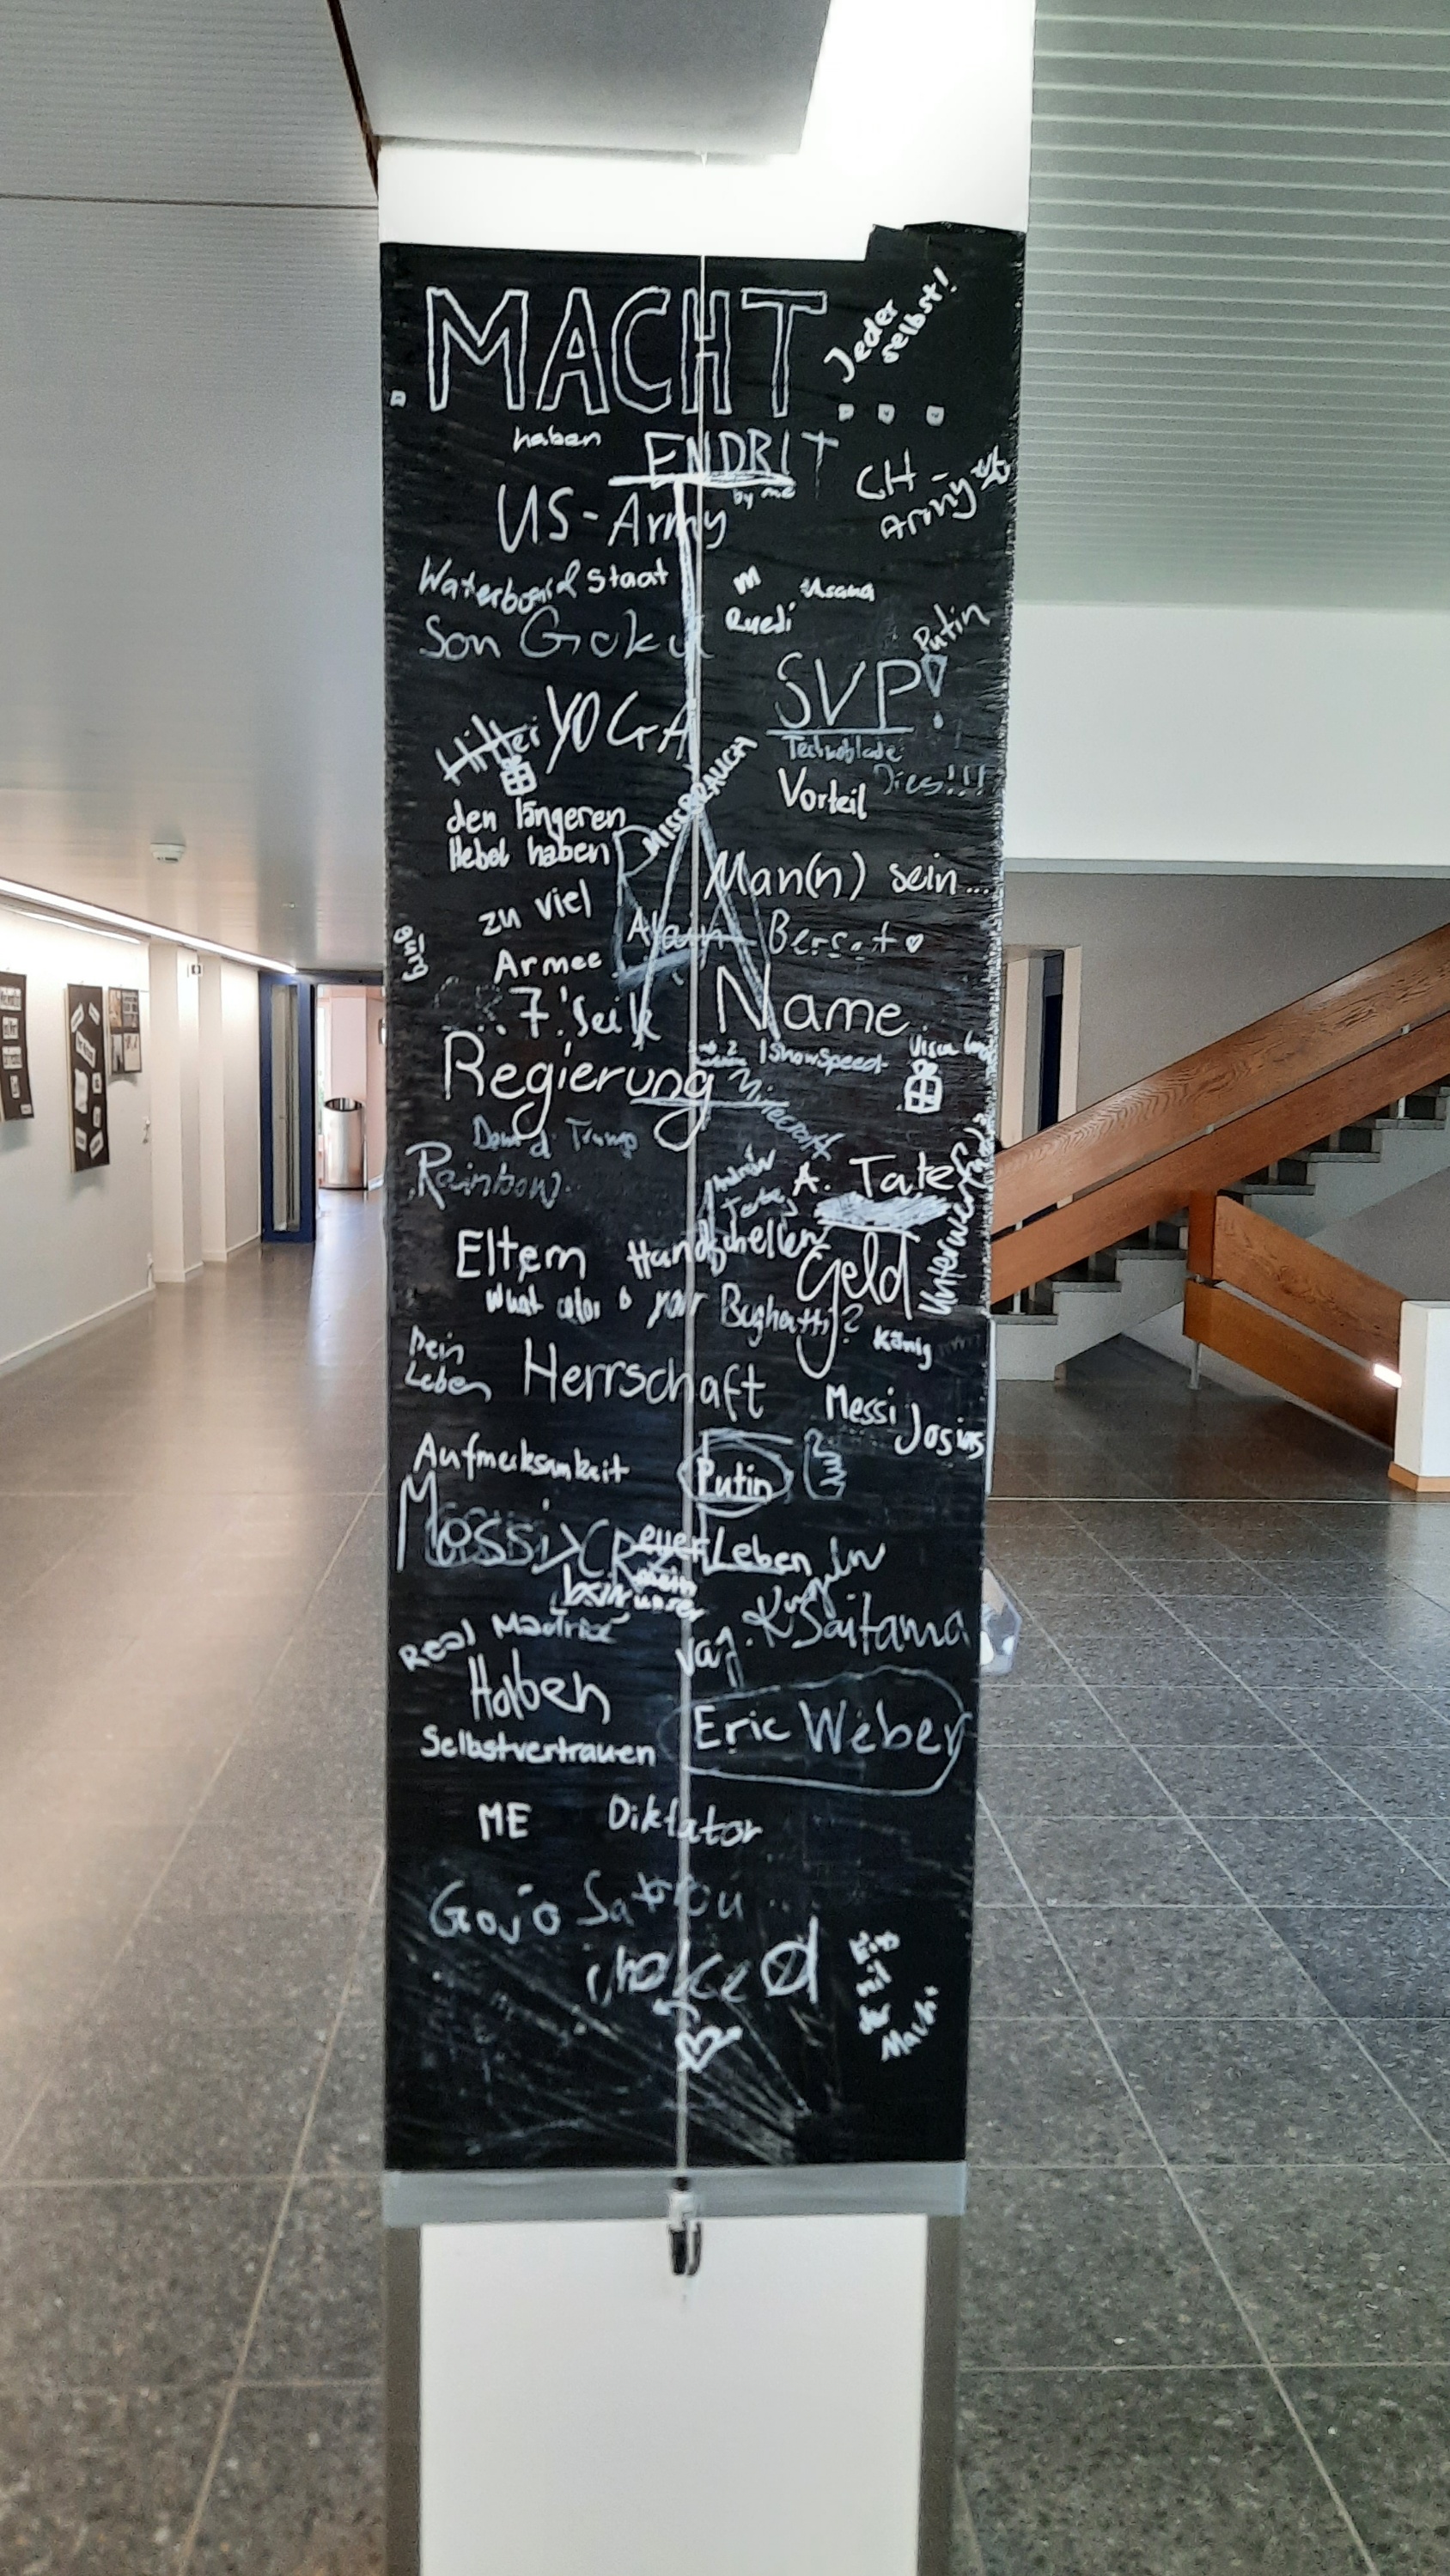 MACHT...
Jeder
selbst!
haben
ENDRIT
by me
CH-
Army
US-Army
Waterboard Staat
Usana
Ruedi
Son Goku
Putin
SVP!
YOGA
Hitler
Technoblade
Dies!!!
MISSBRAUCH
Vorteil
den längeren
Hebel haben
Man(n) sein...
zu viel
Alain Berset
Armee
Name
Regierung
IShowSpeed
Minecraft
Donald Trump
Rainbow
A. Tate
Andrew
Tate
Eltern
Handschellen
Geld
What color is your Bughatti?
König
Dein
Leben
Herrschaft
Messi
Josias
Aufmerksamkeit
Putin
Messi > CR7
euer Leben
mein
unser
Kugeln
Saitama
Real Madrid
Haben
Eric Weber
Selbstvertrauen
ME
Diktator
Gojo Satrou
der
Macht